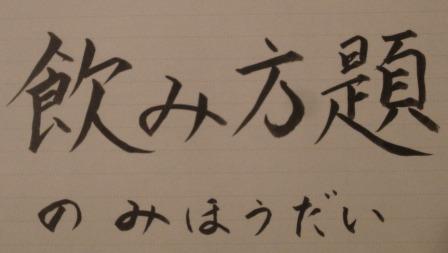 飲み方題
のみほうだい